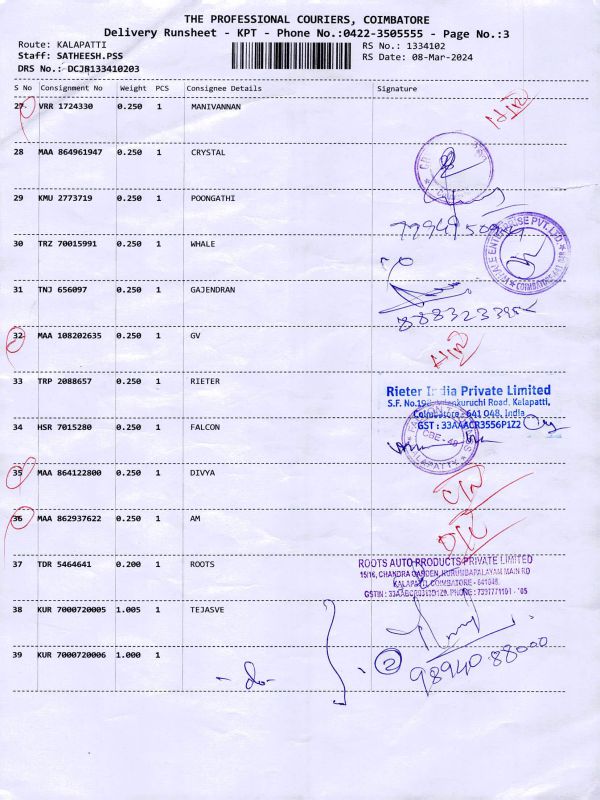 THE PROFESSIONAL COURIERS, COIMBATORE
Delivery Runsheet - KPT - Phone No.:0422-3505555 - Page No.:3
Route: KALAPATTI
RS No.: 1334102
Staff: SATHEESH.PSS
RS Date: 08-Mar-2024
DRS No.: DCJR133410203
S No Consignment No Weight PCS Consignee Details Signature
27 VRR 1724330 0.250 1 MANIVANNAN
28 MAA 864961947 0.250 1 CRYSTAL
29 KMU 2773719 0.250 1 POONGATHI
30 TRZ 70015991 0.250 1 WHALE
COIMBATORE
31 TNJ 656097 0.250 1 GAJENDRAN
32 MAA 108202635 0.250 1 GV
33 TRP 2088657 0.250 1 RIETER
Rieter India Private Limited
S.F. No.19 Road, Kalapatti,
Coimbatore - 641 048, India
GST : 33AAACR3556P1Z2
34 HSR 7015280 0.250 1 FALCON
CBE - 48
35 MAA 864122800 0.250 1 DIVYA
36 MAA 862937622 0.250 1 AM
37 TDR 5464641 0.200 1 ROOTS
ROOTS AUTO PRODUCTS PRIVATE LIMITED
15/16, CHANDRA GARDEN, KURUMBAPALAYAM MAIN RD
KALAPATTI, COIMBATORE - 641048.
38 KUR 7000720005 1.005 1 TEJASVE
39 KUR 7000720006 1.000 1
- do -
2
98940 88000